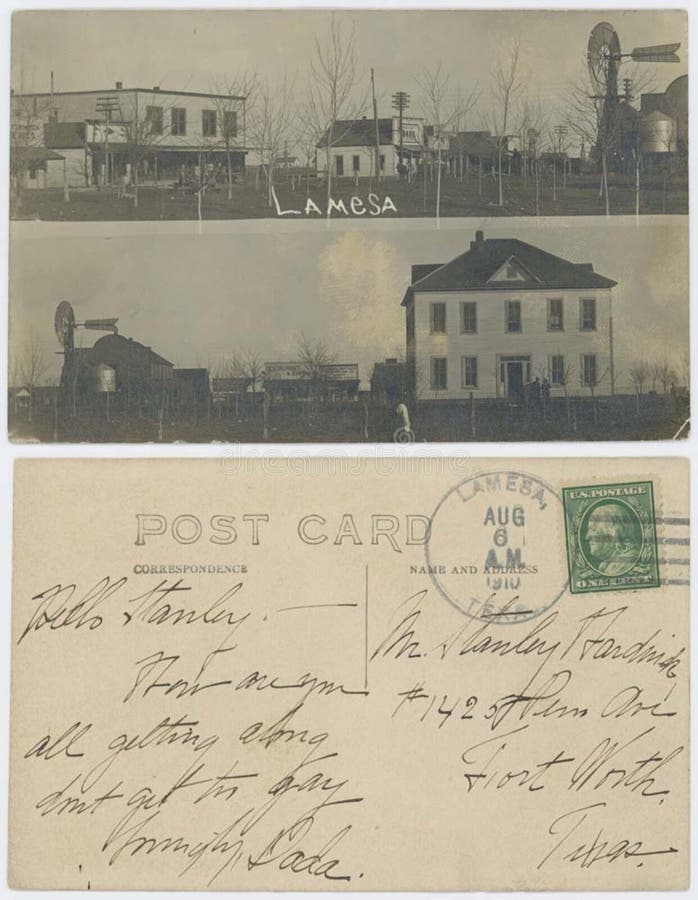 LAMESA
POST CARD
CORRESPONDENCE
NAME AND ADDRESS
LAMESA,
AUG
6
A.M
1910
TEXAS
U.S. POSTAGE
ONE CENT
Hello Stanley. —
How are you
all getting along
dont get to gay
Dada.
Mr. Stanley
#1425 Penn Ave
Fort Worth,
Texas.
dreamstime